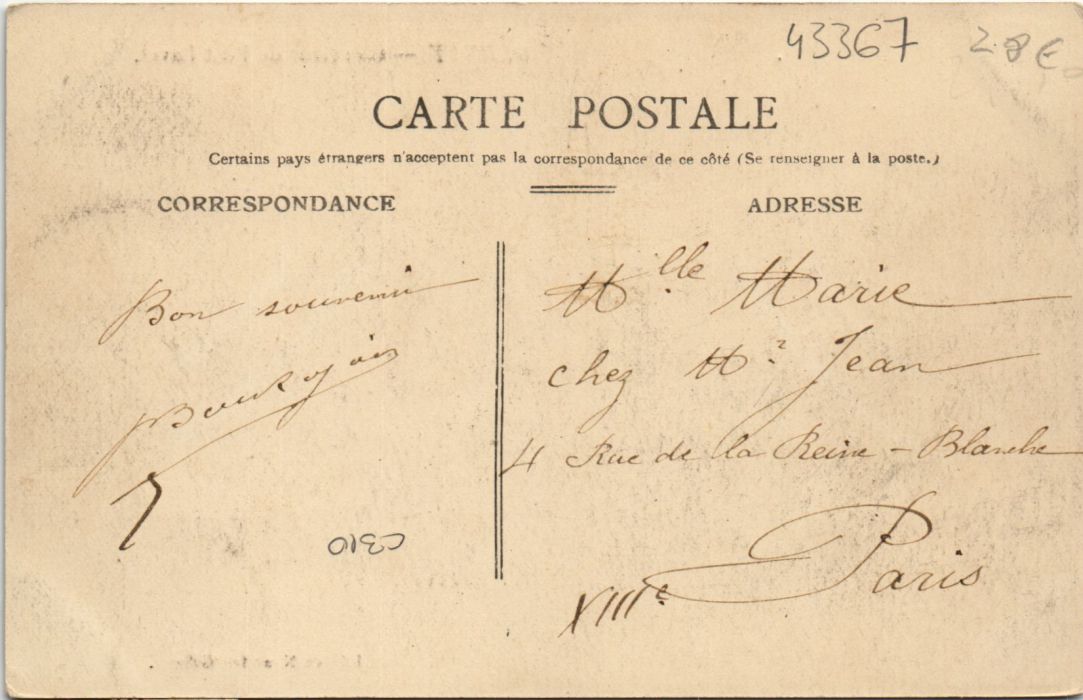 43367 28€
CARTE POSTALE
Certains pays étrangers n'acceptent pas la correspondance de ce côté (Se renseigner à la poste.)
CORRESPONDANCE
Bon souvenir
C310
ADRESSE
Mlle Marie
chez Mr Jean
4 Rue de la Reine-Blanche
Paris
XIIIe